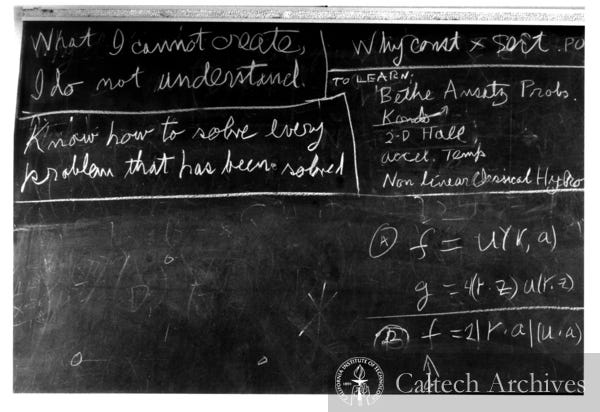 What I cannot create,
I do not understand.
Know how to solve every
problem that has been solved
Why const × sort . PO
TO LEARN:
Bethe Ansatz Probs.
Kondo
2-D Hall
accel. Temp
Non Linear Classical Hydro
(A) f = u(r, a)
g = 4(r·z) u(r, z)
(B) f = 2|r·a|(u·a)
CALIFORNIA INSTITUTE OF TECHNOLOGY
Caltech Archives